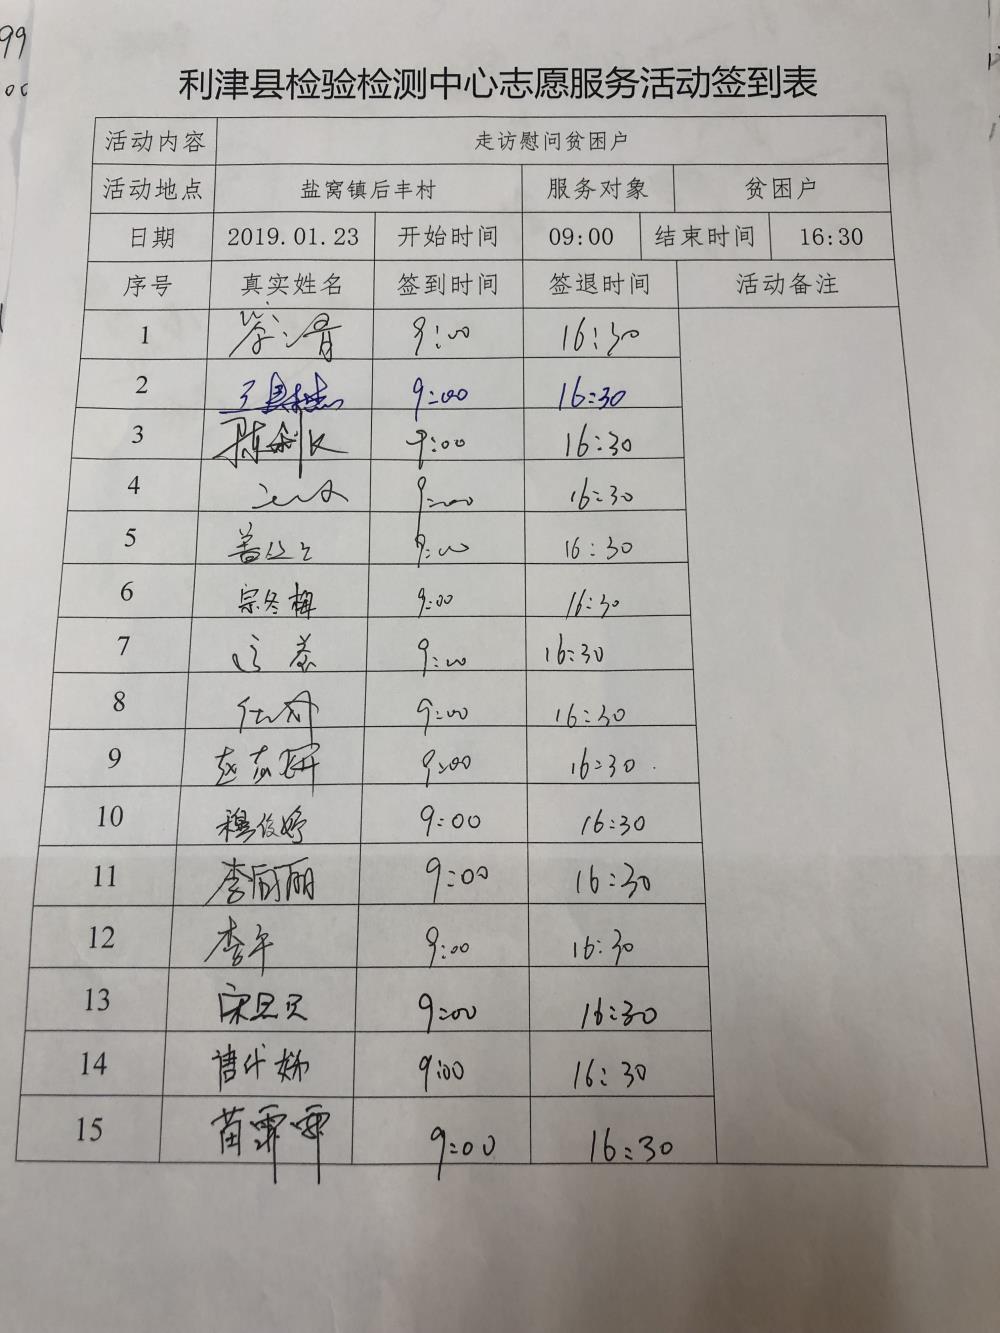 99
00
利津县检验检测中心志愿服务活动签到表
活动内容 走访慰问贫困户
活动地点 盐窝镇后丰村 服务对象 贫困户
日期 2019.01.23 开始时间 09:00 结束时间 16:30
序号 真实姓名 签到时间 签退时间 活动备注
1 9:00 16:30
2 9:00 16:30
3 9:00 16:30
4 9:00 16:30
5 9:00 16:30
6 宗冬梅 9:00 16:30
7 9:00 16:30
8 9:00 16:30
9 9:00 16:30
10 穆俊婷 9:00 16:30
11 李丽丽 9:00 16:30
12 李午 9:00 16:30
13 9:00 16:30
14 9:00 16:30
15 苗霏霏 9:00 16:30